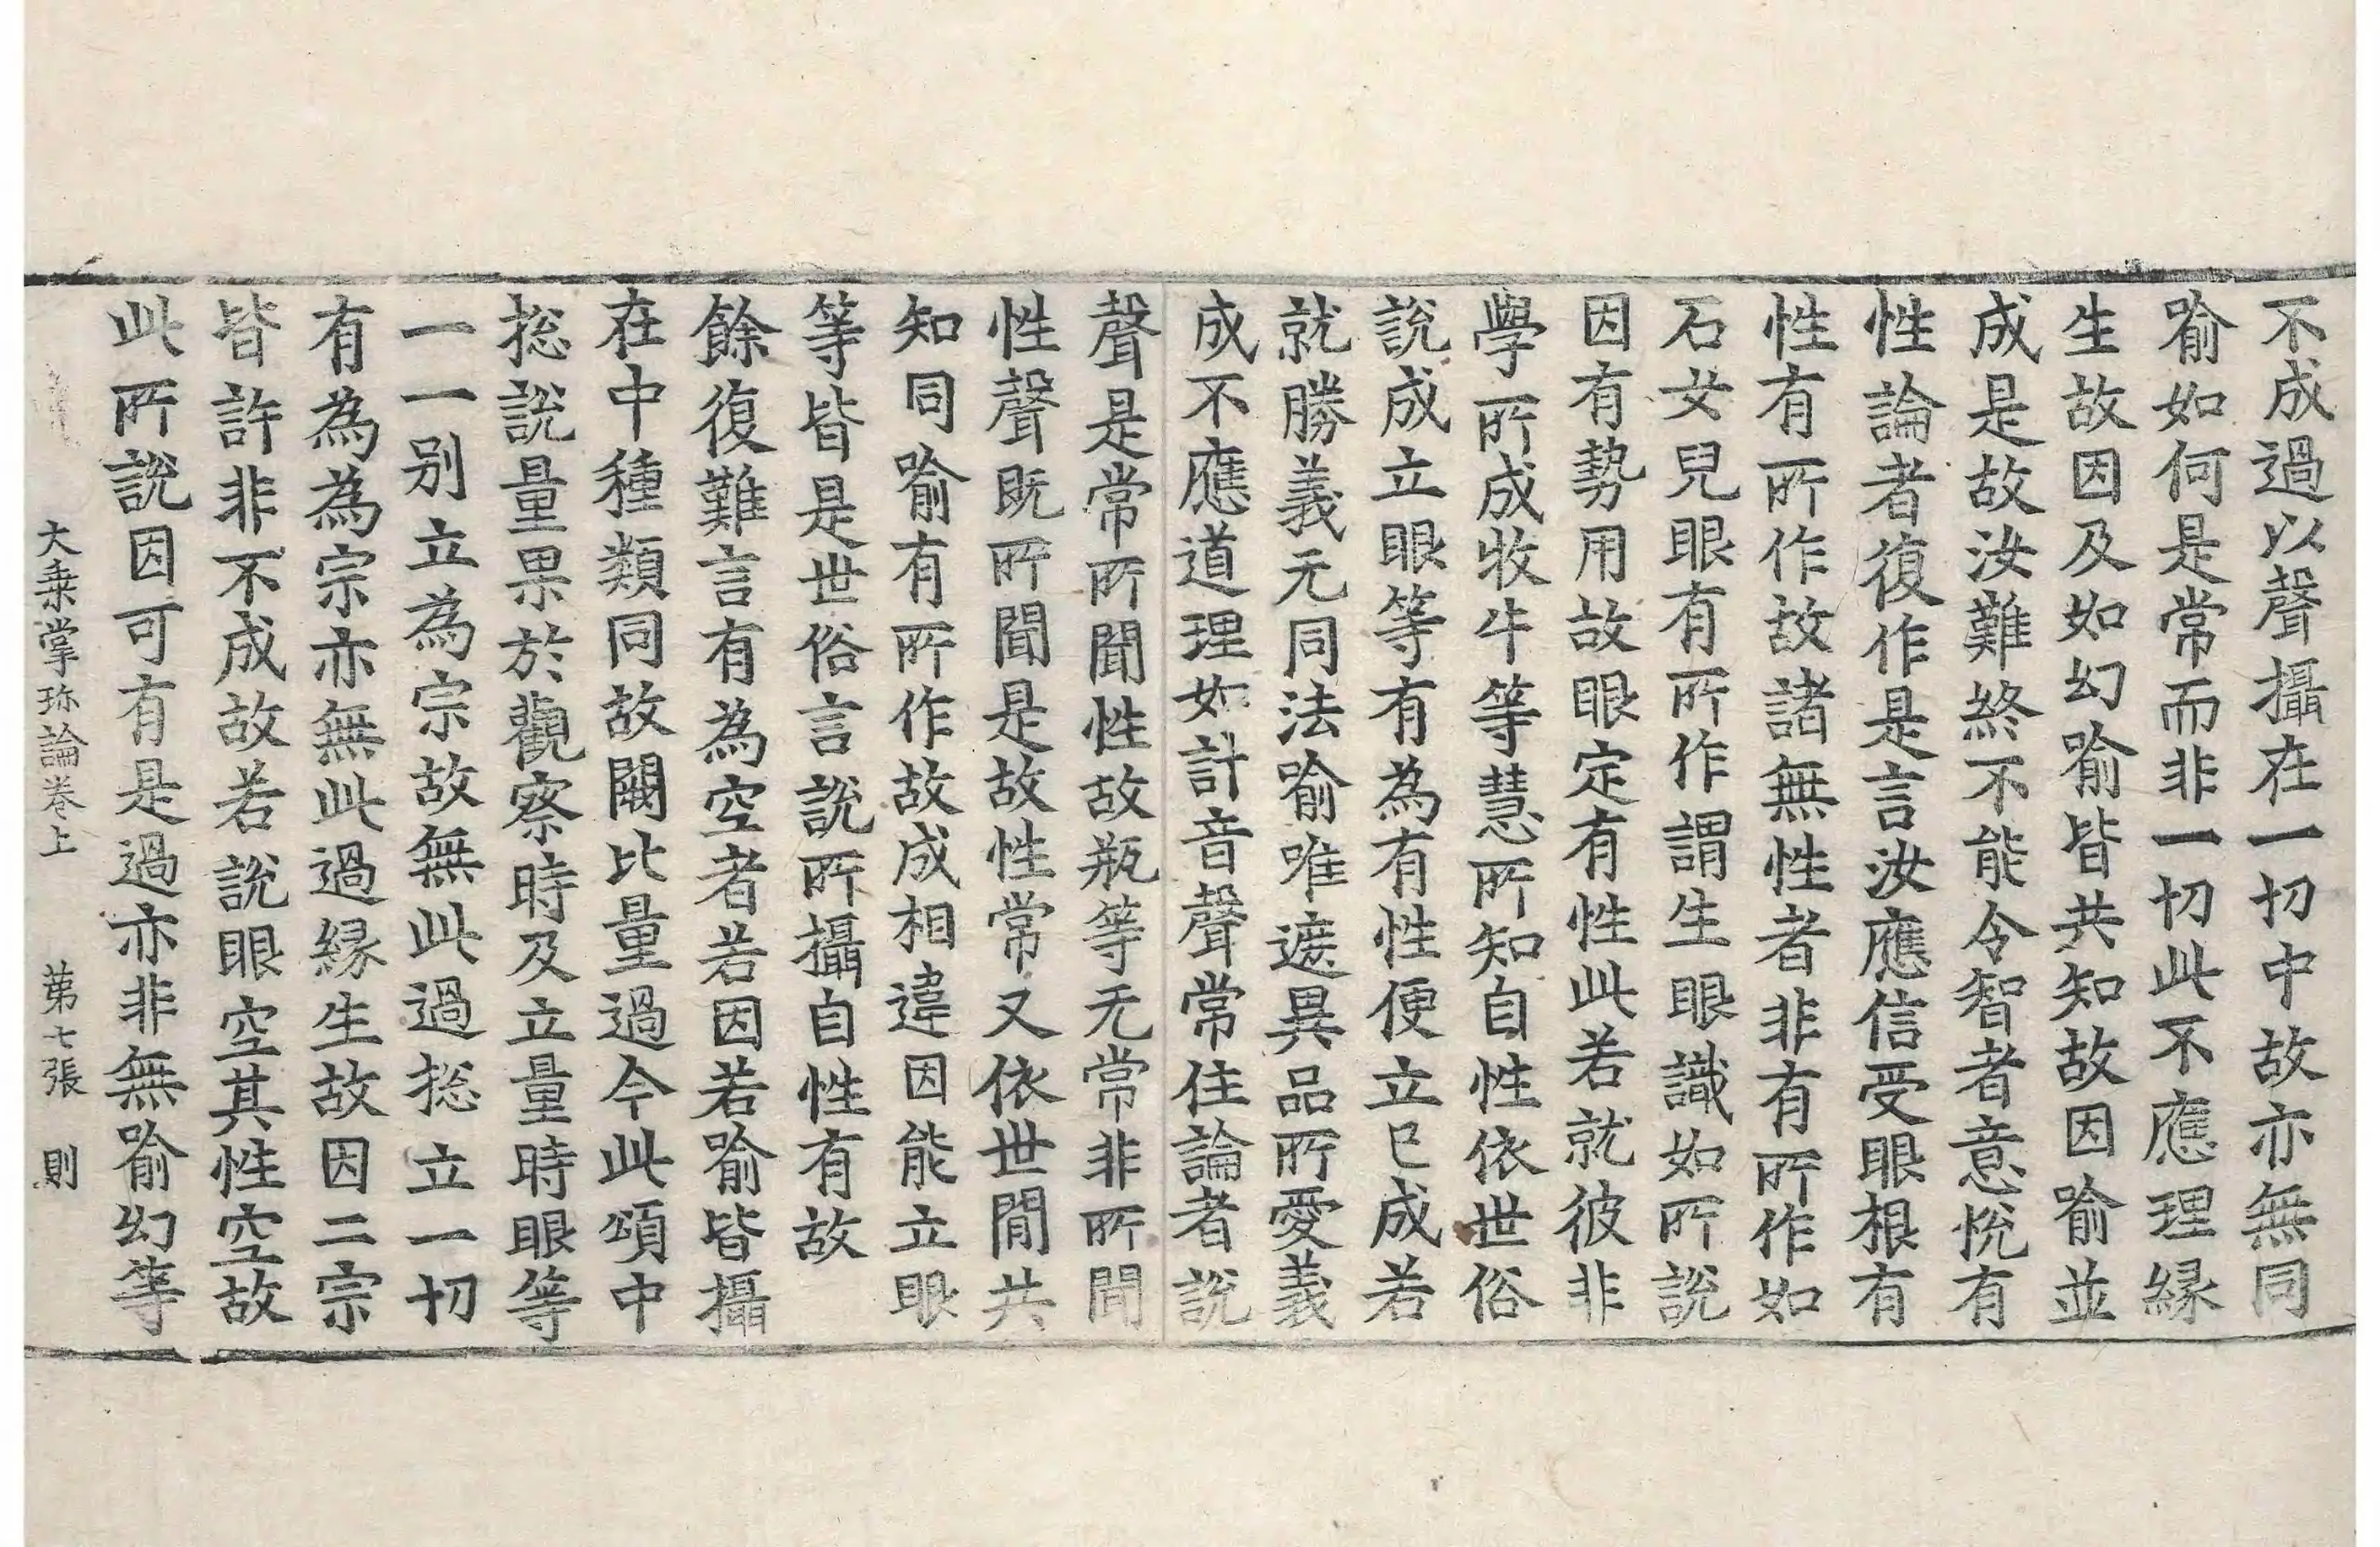 不成過以聲攝在一切中故亦無同
喻如何是常而非一切此不應理緣
生故因及如幻喻皆共知故因喻並
成是故汝難終不能令智者意悅有
性論者復作是言汝應信受眼根有
性有所作故諸無性者非有所作如
石女兒眼有所作謂生眼識如所說
因有勢用故眼定有性此若就彼非
學所成牧牛等慧所知自性依世俗
說成立眼等有為有性便立已成若
就勝義元同法喻唯遮異品所愛義
成不應道理如計音聲常住論者說
聲是常所聞性故瓶等无常非所聞
性聲既所聞是故性常又依世間共
知同喻有所作故成相違因能立眼
等皆是世俗言說所攝自性有故
餘復難言有為空者若因若喻皆攝
在中種類同故闕比量過今此頌中
捴說量果於觀察時及立量時眼等
一一別立為宗故無此過捴立一切
有為為宗亦無此過緣生故因二宗
皆許非不成故若說眼空其性空故
此所說因可有是過亦非無喻幻等
大乗掌珎論卷上　第七張　則